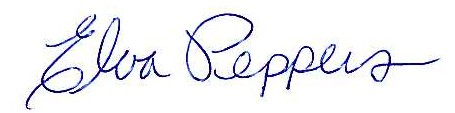 Elva Peppers